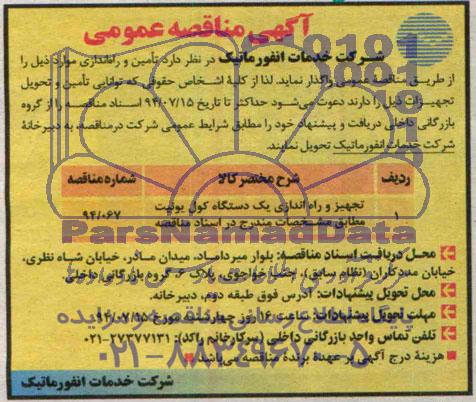 آگهی مناقصه عمومی
شرکت خدمات انفورماتیک در نظر دارد تأمین و راه‌اندازی موارد ذیل را
از طریق مناقصه عمومی واگذار نماید. لذا از کلیهٔ اشخاص حقوقی که توانایی تأمین و تحویل
تجهیزات ذیل را دارند دعوت می‌شود حداکثر تا تاریخ ۹۴/۰۷/۱۵ اسناد مناقصه را از گروه
بازرگانی داخلی دریافت و پیشنهاد خود را مطابق شرایط عمومی شرکت در مناقصه، به دبیرخانهٔ
شرکت خدمات انفورماتیک تحویل نمایند.
ردیف شرح مختصر کالا شماره مناقصه
۱ تجهیز و راه اندازی یک دستگاه کول یونیت مطابق مشخصات مندرج در اسناد مناقصه ۹۴/۰۶۷
ParsNamadData
محل دریافت اسناد مناقصه: بلوار میرداماد، میدان مادر، خیابان شاه نظری،
خیابان مددکاران (نظام سابق)، خواجوی، پلاک ۶، گروه بازرگانی داخلی.
محل تحویل پیشنهادات: آدرس فوق طبقه دوم، دبیرخانه.
مهلت تحویل پیشنهادات: ساعت ۱۶ روز چهارشنبه مورخ ۹۴/۰۷/۱۵
تلفن تماس واحد بازرگانی داخلی (سرکارخانم راکد): ۲۷۳۷۷۱۳۱-۰۲۱
هزینهٔ درج آگهی بر عهدهٔ برندهٔ مناقصه می‌باشد.
۰۲۱-۸۸۳۴۹۶۷۰-۵
شرکت خدمات انفورماتیک